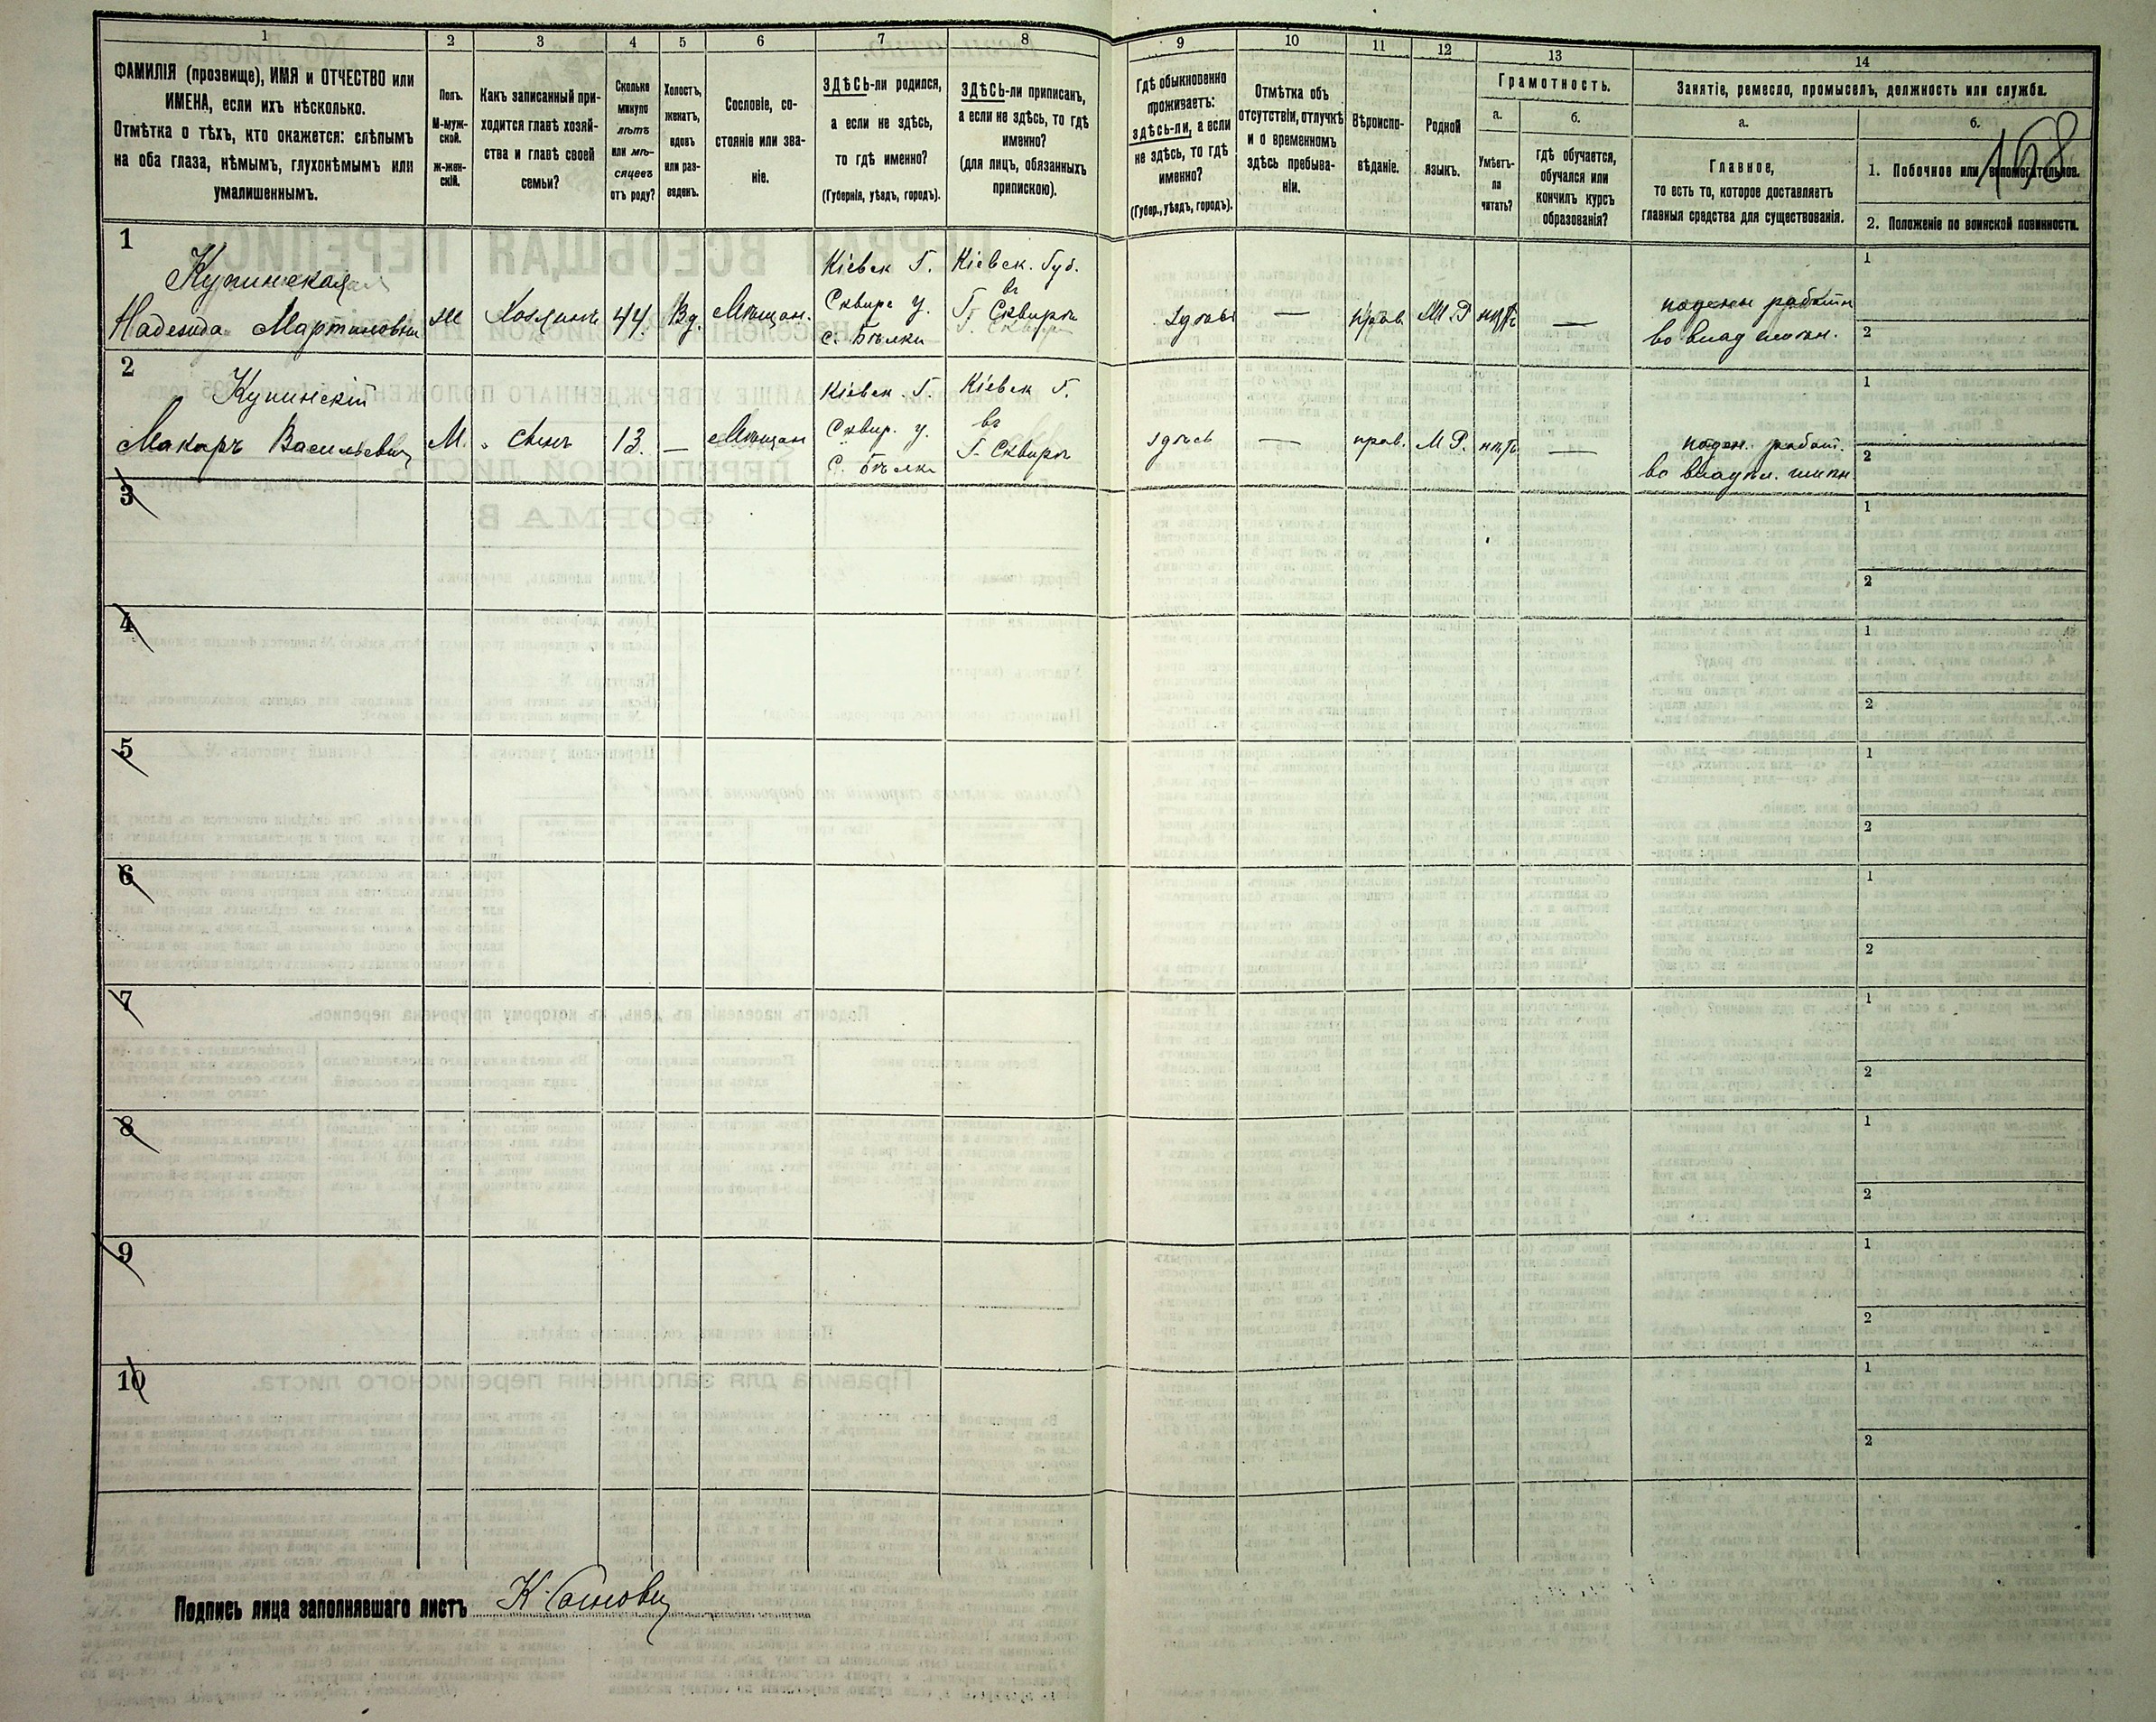 1
2
3
4
5
6
7
8
9
10
11
12
13
14
ФАМИЛІЯ (прозвище), ИМЯ и ОТЧЕСТВО или
ИМЕНА, если ихъ нѣсколько.
Отмѣтка о тѣхъ, кто окажется: слѣпымъ
на оба глаза, нѣмымъ, глухонѣмымъ или
умалишеннымъ.
Полъ.
М-муж-
ской.
ж-жен-
скій.
Какъ записанный при-
ходится главѣ хозяй-
ства и главѣ своей
семьи?
Сколько
минуло
лѣтъ
или мѣ-
сяцевъ
отъ роду?
Холостъ,
женатъ,
вдовъ
или раз-
веденъ.
Сословіе, со-
стояніе или зва-
ніе.
ЗДѢСЬ-ли родился,
а если не здѣсь,
то гдѣ именно?
(Губернія, уѣздъ, городъ).
ЗДѢСЬ-ли приписанъ,
а если не здѣсь, то гдѣ
именно?
(для лицъ, обязанныхъ
припискою).
Гдѣ обыкновенно
проживаетъ:
здѣсь-ли, а если
не здѣсь, то гдѣ
именно?
(Губер., уѣздъ, городъ).
Отмѣтка объ
отсутствіи, отлучкѣ
и о временномъ
здѣсь пребыва-
ніи.
Вѣроиспо-
вѣданіе.
Родной
языкъ.
Грамотность.
а.
Умѣетъ-
ли
читать?
б.
гдѣ обучается,
обучался или
кончилъ курсъ
образованія?
Занятіе, ремесло, промыселъ, должность или служба.
а.
Главное,
то есть то, которое доставляетъ
главныя средства для существованія.
б.
158
1. Побочное или вспомогательное.
2. Положеніе по воинской повинности.
1
Купинская
Надежда Мартиновна
Ж
Хозяинъ
44
Вд.
Мѣщан.
Кіевск Г.
Сквир у.
с. Бѣлки
Кіевск. Губ.
въ
Г. Сквирѣ
здѣсь
—
прав.
М.Р.
нѣтъ
—
поденн работн
1
2
2
Купинскій
Макаръ Васильевич
М.
Сынъ
13.
—
Мѣщан
Кіевск. Г.
Сквир. у.
С. Бѣлки
Кіевск Г.
въ
Г. Сквирѣ
здѣсь
—
прав.
М Р.
нѣтъ
—
поден. работ.
1
2
3
1
2
4
1
2
5
1
2
6
1
2
7
1
2
8
1
2
9
1
2
10
1
2
Подпись лица заполнявшаго листъ